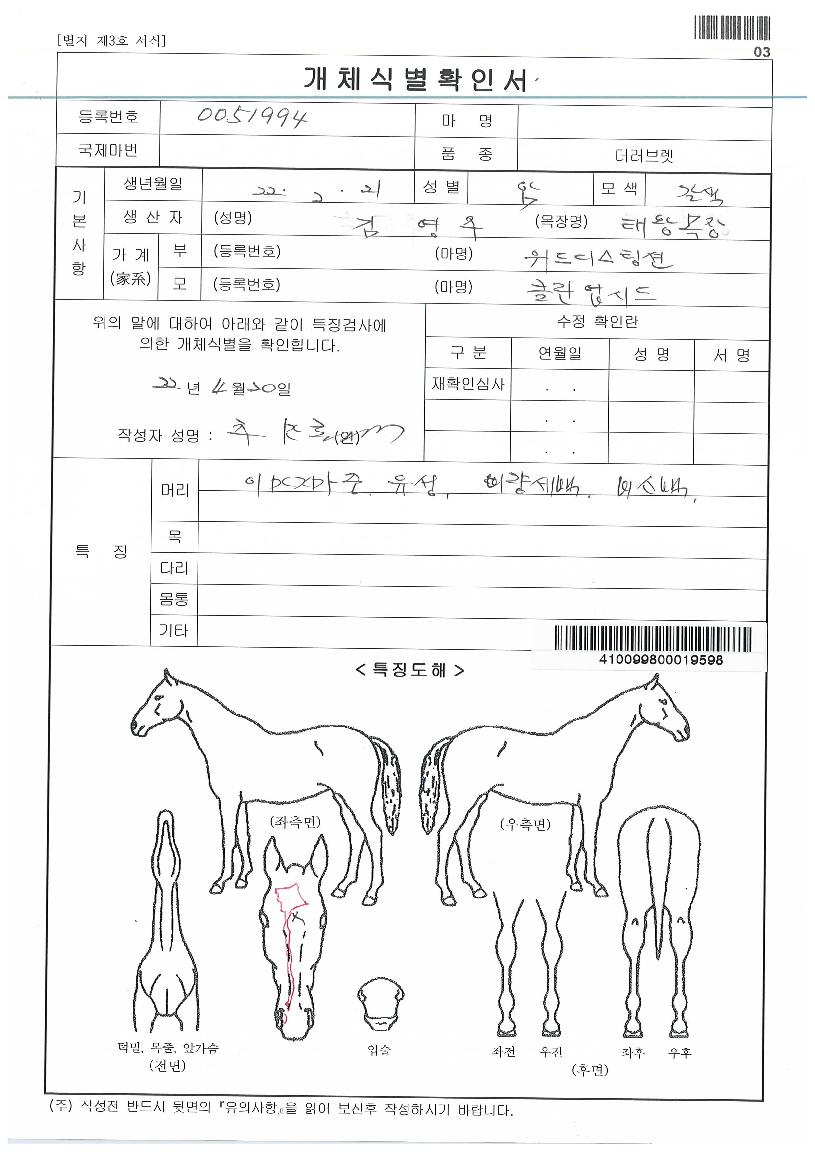 [별지 제3호 서식]
03
개체식별확인서
등록번호 0051994 마 명
국제마번 품 종 더러브렛
기본사항
생년월일 22. 2. 21 성별 암 모색 갈색
생산자 (성명) 김영주 (목장명) 태왕목장
가계 (家系) 부 (등록번호) (마명) 위드디스팅션
모 (등록번호) (마명) 클란업시드
위의 말에 대하여 아래와 같이 특징검사에
의한 개체식별을 확인합니다.
22년 4월 20일
작성자 성명 : (인)
수정 확인란
구분 연월일 성명 서명
재확인심사 . .
. .
. .
특 징
머리 유성, 비량세백, 비신백.
목
다리
몸통
기타
410099800019598
<특징도해>
(좌측면) (우측면)
턱밑, 목줄, 앞가슴
(전면)
입술
좌전 우전 좌후 우후
(후면)
(주) 작성전 반드시 뒷면의 『유의사항』을 읽어 보신후 작성하시기 바랍니다.